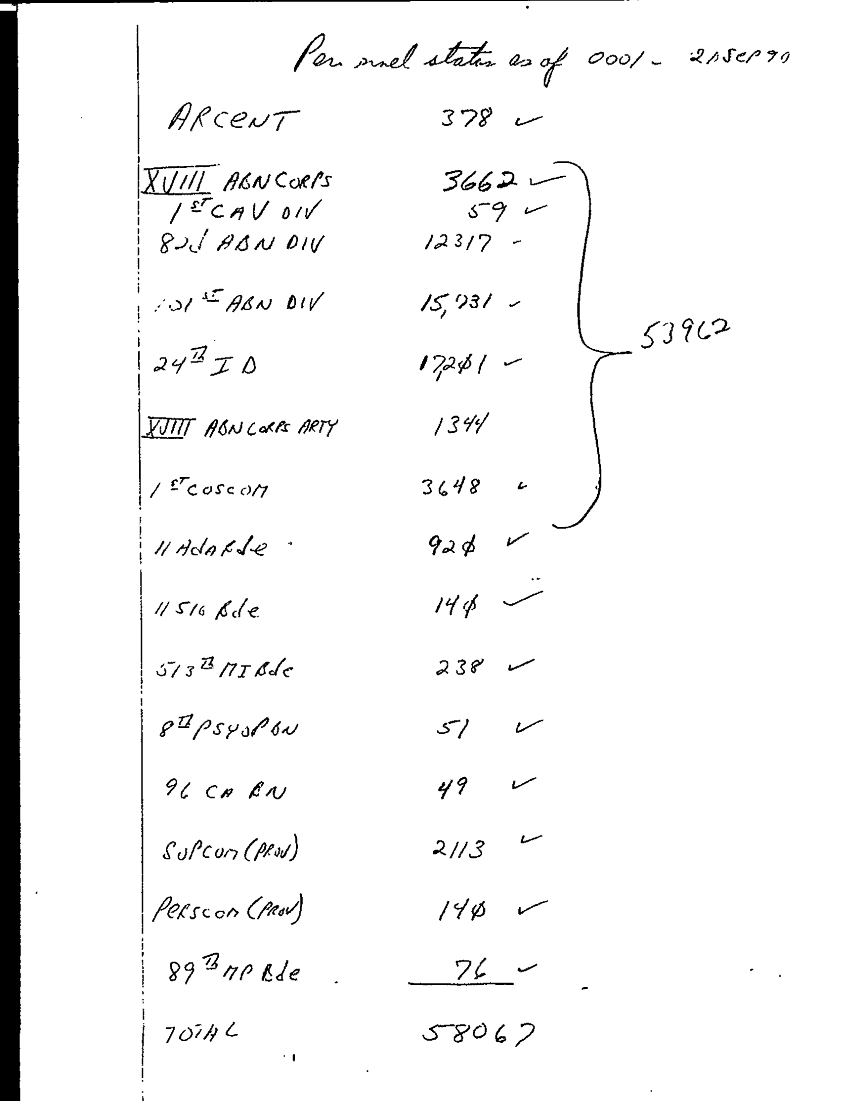 Personnel status as of 0001 - 21 SEP 90
ARCENT 378 ✓
XVIII ABN CORPS 3662 ✓
1ST CAV DIV 59 ✓
82d ABN DIV 12317 -
101ST ABN DIV 15,731 ✓
53962
24TH ID 17,201 ✓
XVIII ABN CORPS ARTY 1344
1ST COSCOM 3648 ✓
11 AdA Bde 920 ✓
11 SIG Bde 140 ✓
513TH MI Bde 238 ✓
8TH PSYOP BN 51 ✓
96 CA BN 49 ✓
SUPCOM (PROV) 2113 ✓
PERSCOM (PROV) 140 ✓
89TH MP Bde 76 ✓
TOTAL 58067